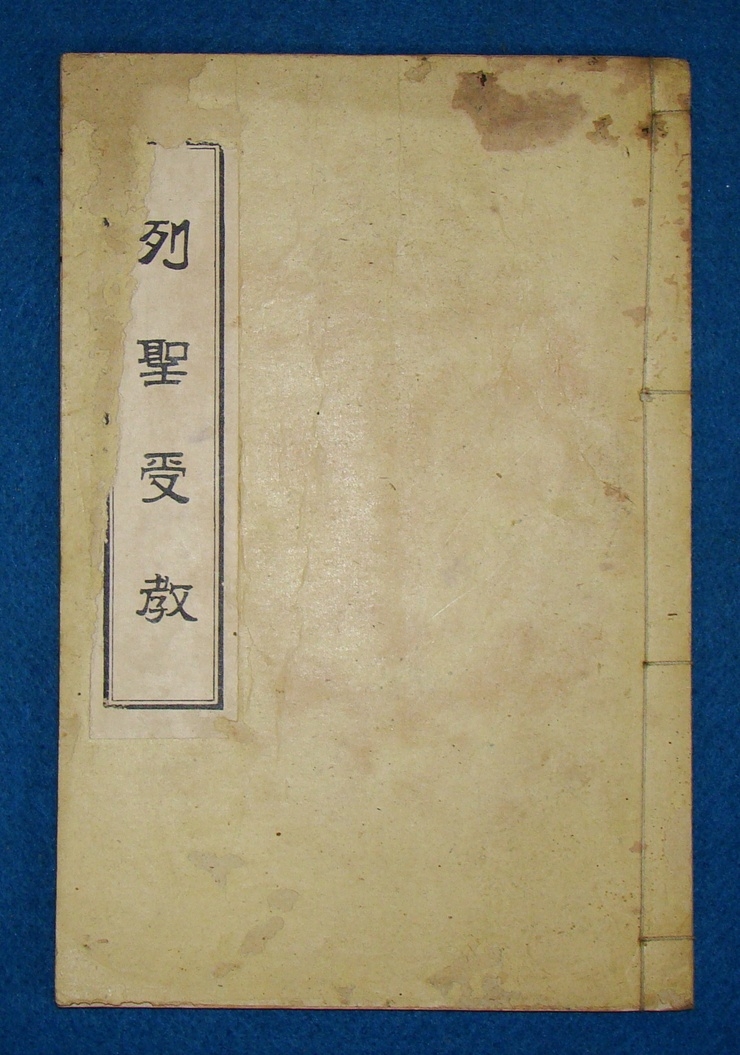 列聖受教